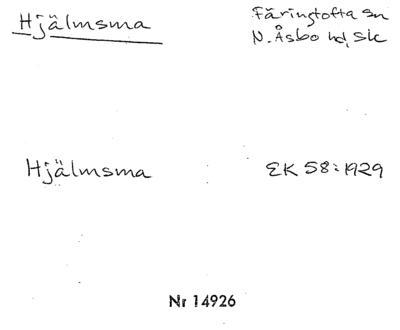 Hjälmsma
Färingtofta sn
N. Åsbo hd, Sk
Hjälmsma
EK 58:1929
Nr 14926